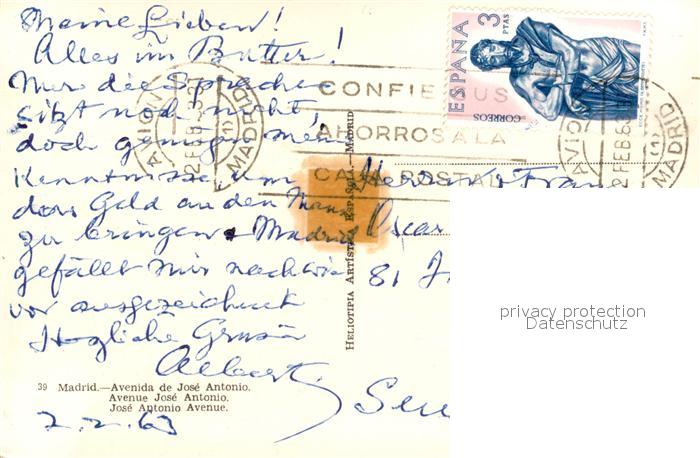 Meine Lieben!
Alles in Butter!
Nur die Sprache
sitzt noch nicht,
doch genügen meine
Kenntnisse, um
den Geld an den Mann
zu bringen. Madrid
gefällt mir nach wie
vor ausgezeichnet
Herzliche Grüsse
Albert
39 Madrid.—Avenida de José Antonio.
Avenue José Antonio.
José Antonio Avenue.
2.2.63
HELIOTIPIA ARTÍSTICA ESPAÑOLA.—MADRID
ESPAÑA
3 PTAS
CORREOS
CONFIE SUS
AHORROS A LA
CAJA POSTAL
AVION
2 FEB 63
MADRID
(1)
AVION
2 FEB 63
MADRID
(1)
Herrn u Frau
Oscar
81
privacy protection
Datenschutz